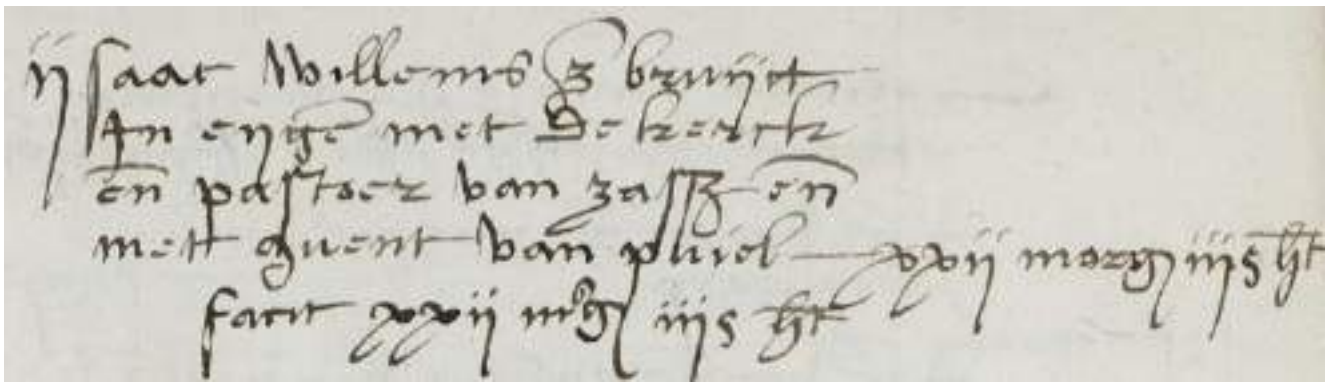 ij saat Willems z bruijct
in eijgē met de kerck
eñ pastoer van zassz eñ
met quent van pluiel xxij morg iijs ht
facit xxij mrg iijs ht